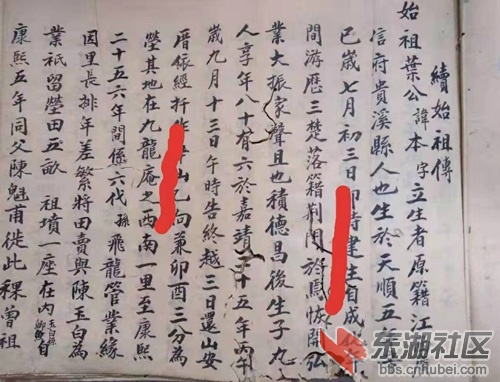 續始祖傳
始祖葉公諱本字立生者原籍江
信府貴溪縣人也生於天順五年
巳歲七月初三日卯時建生自成
間游歷三楚落籍荆門於焉恢開弘
業大振家聲且也積德昌後生子九
人享年八十有六於嘉靖二十五年丙午
歲九月十三日午時告終越三日還山安
厝依經扦作 山乙向兼卯酉三分為
塋其地在九龍庵之西南一里至康熙
二十五六年間係六代孫飛龍管業緣
因里長排年差繁將田賣與陳玉白為
業衹留塋田五畝 祖墳一座在內
康熙五年同父陳魁甫徙此稞曾祖
東湖社区
bbs.cnhubei.com